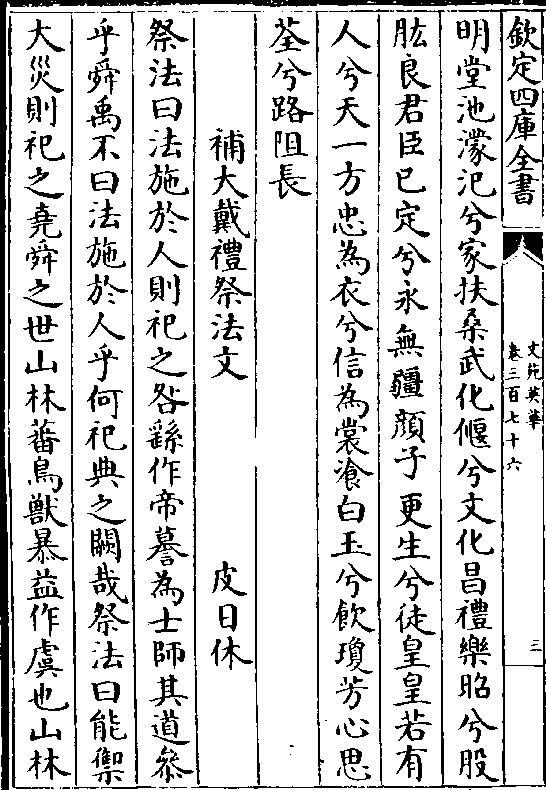 欽定四庫全書
文苑英華
卷三百七十六
三
明堂池濛汜兮家扶桑武化偃兮文化昌禮樂昭兮股
肱良君臣已定兮永無疆顔子更生兮徒皇皇若有
人兮天一方忠為衣兮信為裳飡白玉兮飲瓊芳心思
荃兮路阻長
補大戴禮祭法文 皮日休
祭法曰法施於人則祀之咎繇作帝謩為士師其道叅
乎舜禹不曰法施於人乎何祀典之闕哉祭法曰能禦
大災則祀之堯舜之世山林蕃鳥獸暴益作虞也山林